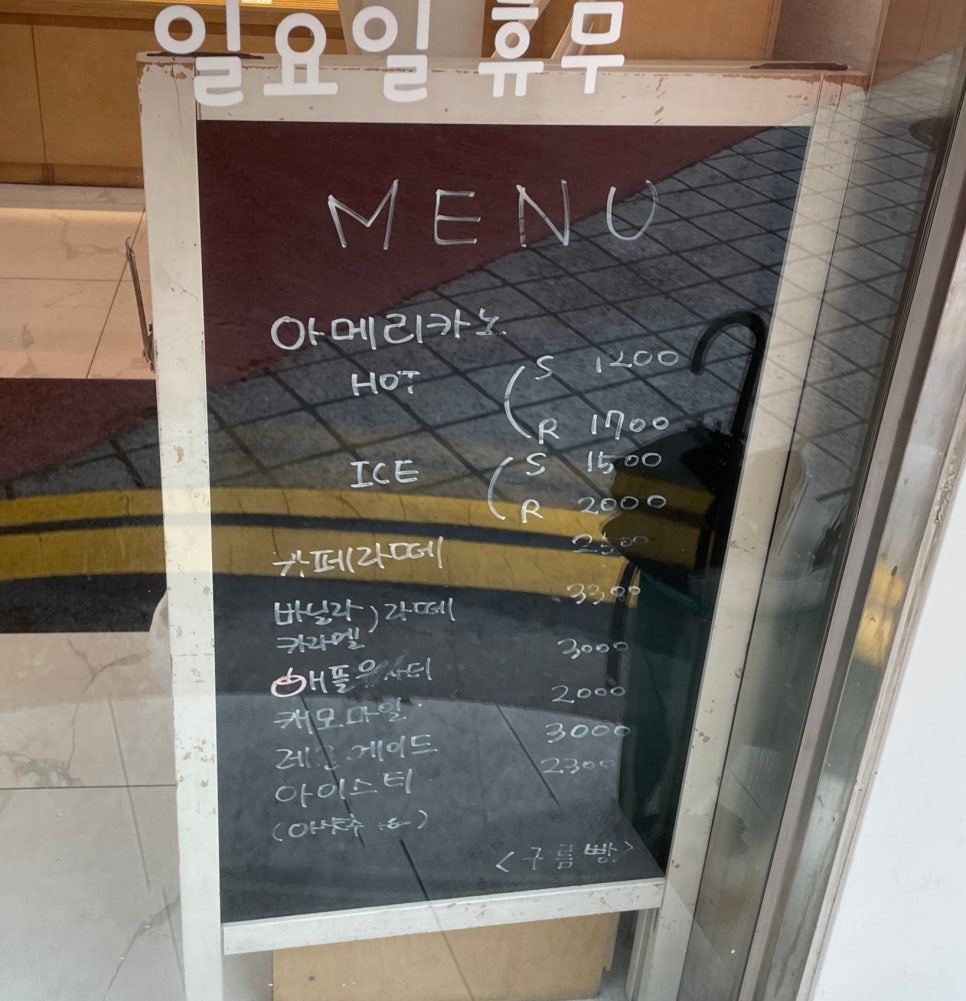 일요일 휴무
MENU
아메리카노
HOT ( S 1200
R 1700
ICE ( S 1500
R 2000
카페라떼 2500
바닐라 ) 라떼 3300
카라멜
애플유자티 3000
캐모마일 2000
레몬에이드 3000
아이스티 2300
<구름빵>